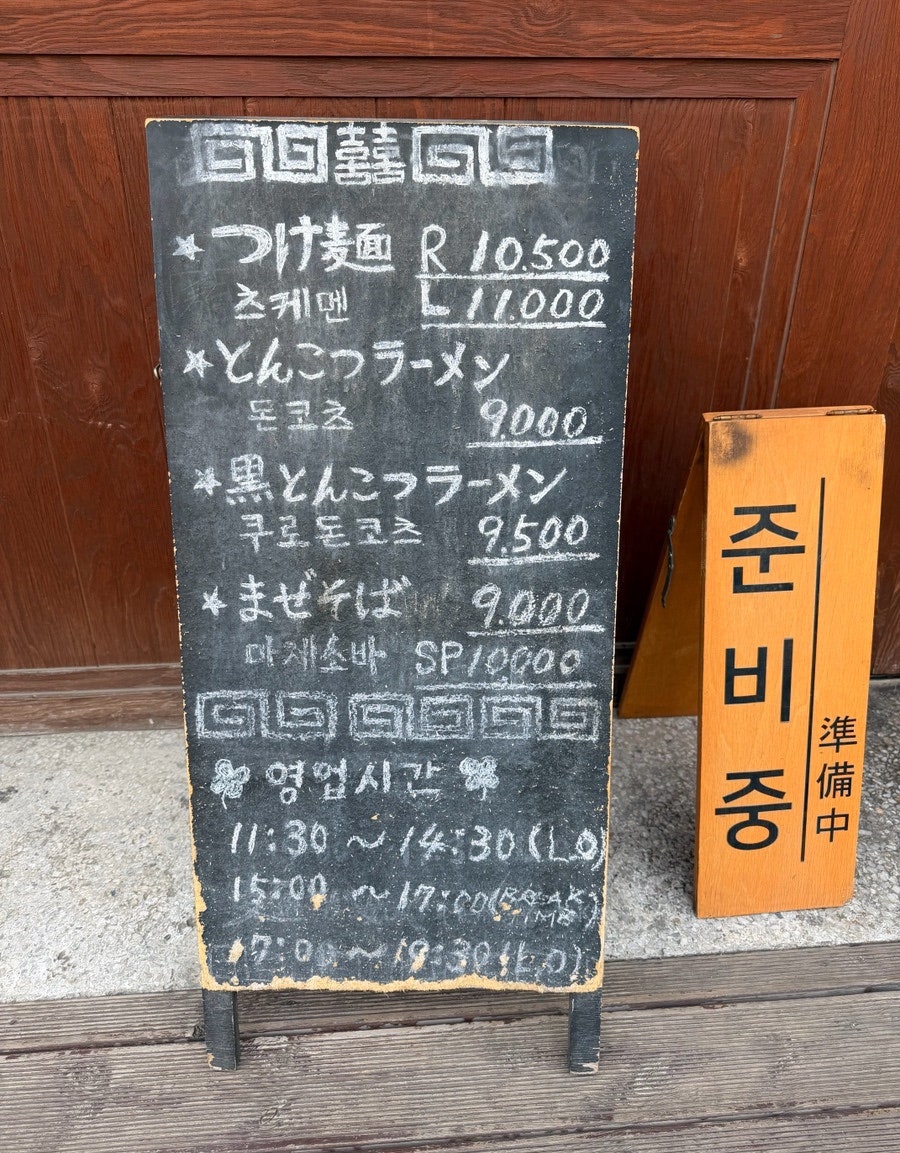 囍
☆つけ麺 R 10.500
츠케멘 L 11.000
☆とんこつラーメン
돈코츠 9.000
☆黒とんこつラーメン
쿠로돈코츠 9.500
☆まぜそば 9.000
마제소바 SP 10000
영업시간
11:30 ~ 14:30 (L.O)
15:00 ~ 17:00 (BREAK TIME)
17:00 ~ 19:30 (L.O)
준비중
準備中